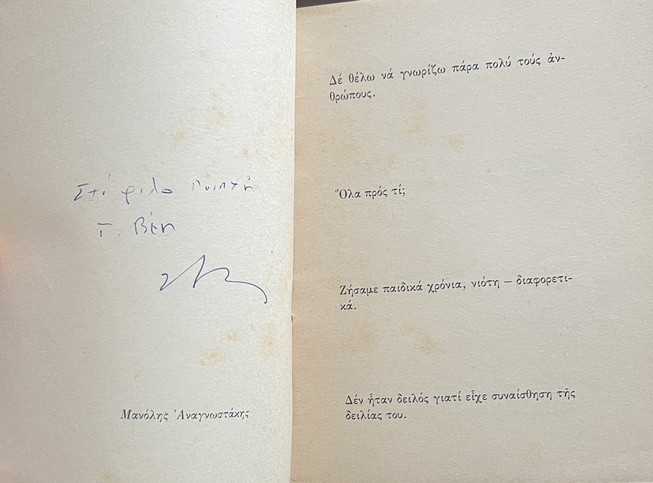 Στὸ φίλο ποιητή
Γ. Βέη
Μανόλης Ἀναγνωστάκης
Δέ θέλω νά γνωρίζω πάρα πολύ τούς ἀν-
θρώπους.
Ὅλα πρός τί;
Ζήσαμε παιδικά χρόνια, νιότη – διαφορετι-
κά.
Δέν ἦταν δειλός γιατί εἶχε συναίσθηση τῆς
δειλίας του.